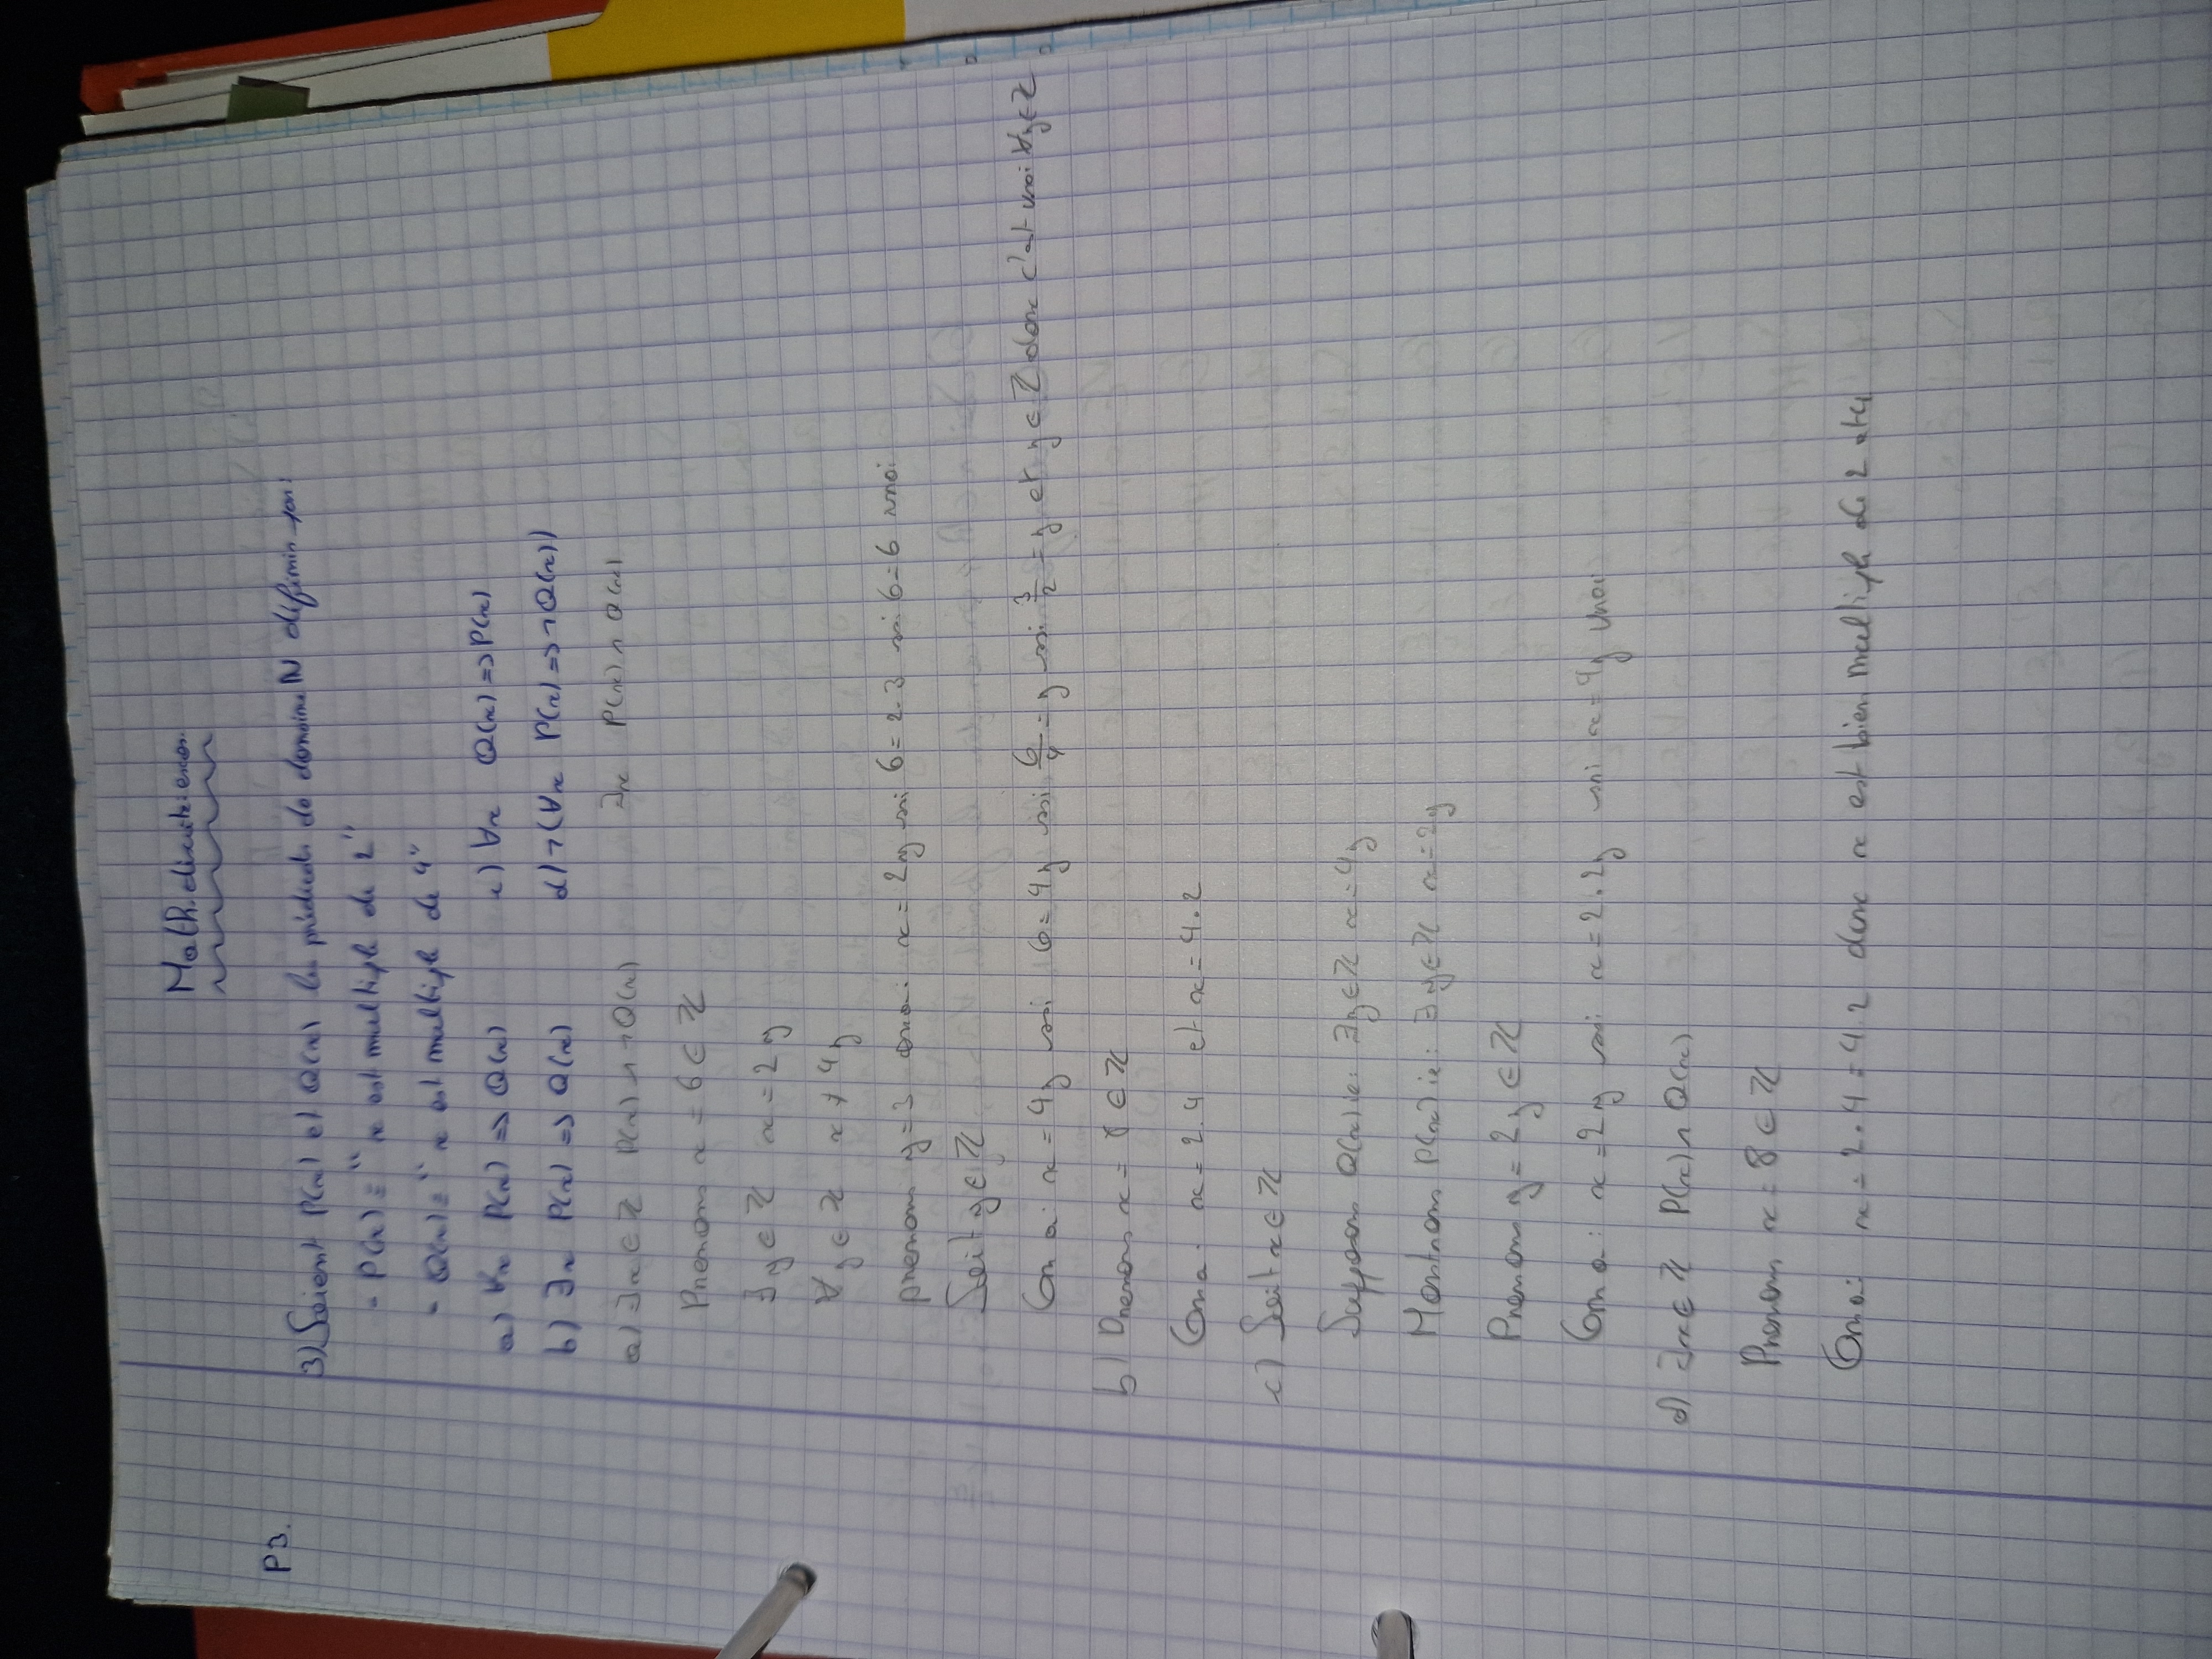 Math. discrète: exos.
P3.
3) Soient P(x) et Q(x) les prédicats de domaine ℕ définis par:
- P(x) = "x est multiple de 2"
- Q(x) = "x est multiple de 4"
a) ∀x P(x) => Q(x) c) ∀x Q(x) => P(x)
b) ∃x P(x) => Q(x) d) ¬(∀x P(x) => ¬Q(x))
a) ∃x ∈ ℤ P(x) ∧ ¬Q(x) ∃x P(x) ∧ Q(x)
Prenons x = 6 ∈ ℤ
∃y ∈ ℤ x = 2y
∀y ∈ ℤ x ≠ 4y
prenons y = 3 on a: x = 2y ssi 6 = 2.3 ssi 6 = 6 vrai
Soit y ∈ ℤ
On a: x = 4y ssi 6 = 4y ssi 6/4 = y ssi 3/2 = y et y ∈ ℤ donc c'est vrai ∀y ∈ ℤ
b) Prenons x = 8 ∈ ℤ
On a: x = 2.4 et x = 4.2
c) Soit x ∈ ℤ
Supposons Q(x) ie: ∃y ∈ ℤ x = 4y
Montrons P(x) ie: ∃y ∈ ℤ x = 2y
Prenons y = 2y ∈ ℤ
On a: x = 2y ssi x = 2.2y ssi x = 4y vrai
d) ∃x ∈ ℤ P(x) ∧ Q(x)
Prenons x = 8 ∈ ℤ
On a: x = 2.4 = 4.2 donc x est bien multiple de 2 et 4